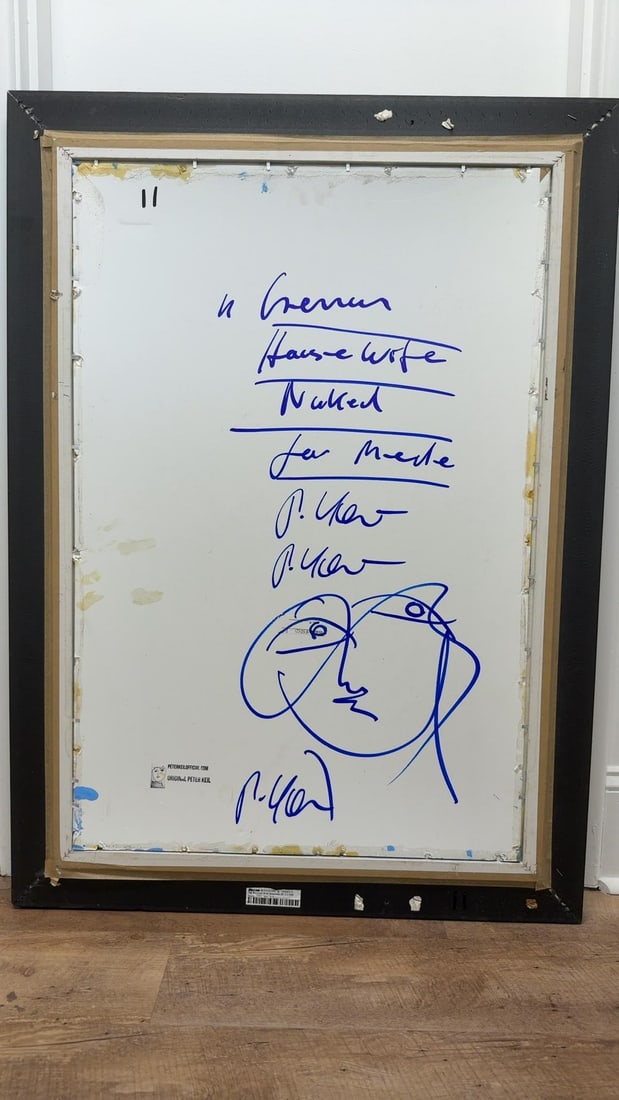 11
" German
House Wife
Naked
for Me
P. Keil
P. Keil
PETERKEILOFFICIAL.COM
ORIGINAL PETER KEIL
P. Keil